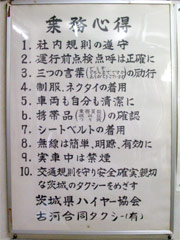 乗務心得
1. 社内規則の遵守
2. 運行前点検点呼は正確に
3. 三つの言葉の励行
4. 制服、ネクタイの着用
5. 車両も自分も清潔に
6. 携帯品の確認
7. シートベルトの着用
8. 無線は簡単、明瞭、有効に
9. 実車中は禁煙
10. 交通規則を守り安全確実親切
な茨城のタクシーをめざす
茨城県ハイヤー協会
古河合同タクシー(有)